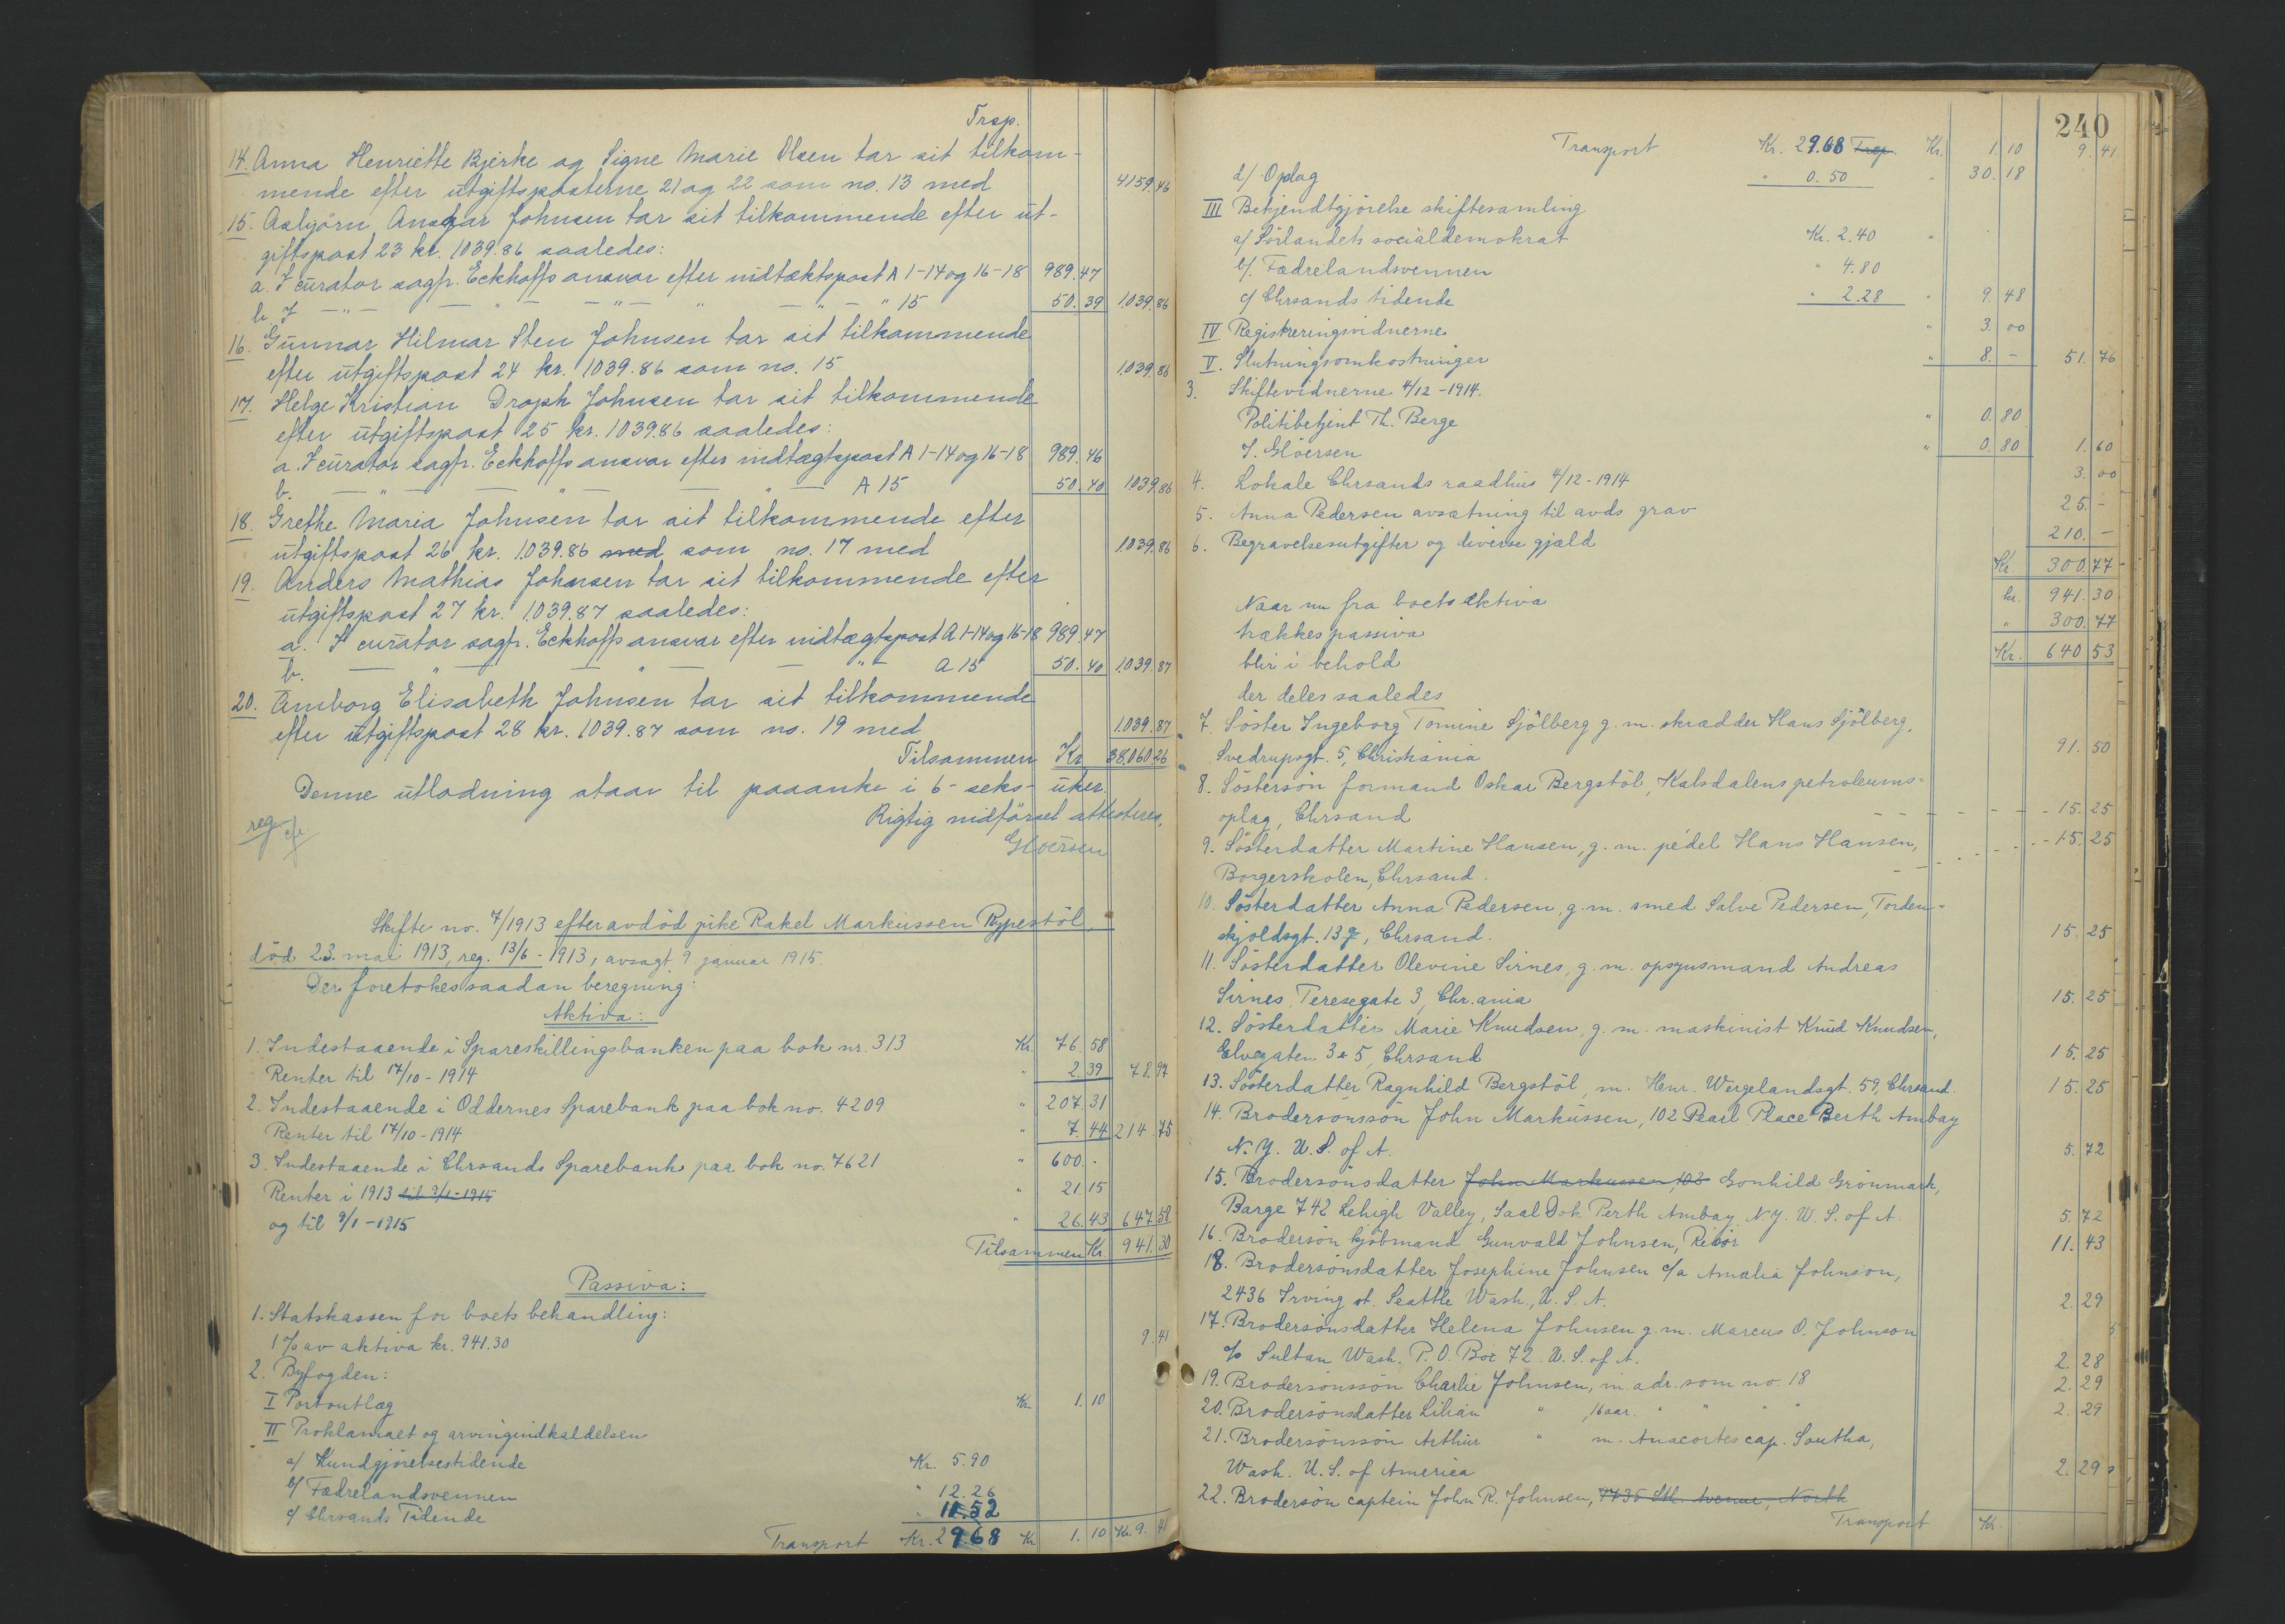 Trsp.
14. Anna Henriette Bjerke og Signe Marie Olsen tar sit tilkom-
mende efter utgiftsposterne 21 og 22 som no. 13 med 4159.46
15. Asbjörn Ansgar Johnsen tar sit tilkommende efter ut-
giftspost 23 kr. 1039.86 saaledes:
a. I curator sagfr. Eckhoffs ansvar efter indtæktspost A 1-14 og 16-18 989.47
b. I — " — " — " — " — " — " 15 50.39 1039.86
16. Gunnar Hilmar Sten Johnsen tar sit tilkommende
efter utgiftspost 24 kr. 1039.86 som no. 15 1039.86
17. Helge Kristian Johnsen tar sit tilkommende
efter utgiftspost 25 kr. 1039.86 saaledes:
a. I curator sagfr. Eckhoffs ansvar efter indtægtspost A 1-14 og 16-18 989.46
b. — " — " — " — A 15 50.40 1039.86
18. Grethe Maria Johnsen tar sit tilkommende efter
utgiftspost 26 kr. 1039.86 med som no. 17 med 1039.86
19. Anders Mathias Johnsen tar sit tilkommende efter
utgiftspost 27 kr. 1039.87 saaledes:
a. I curator sagfr. Eckhoffs ansvar efter indtægtspost A 1-14 og 16-18 989.47
b. — " — " — " — A 15 50.40 1039.87
20. Amborg Elisabeth Johnsen tar sit tilkommende
efter utgiftspost 28 kr. 1039.87 som no. 19 med 1039.87
Tilsammen Kr. 38.060.26
Denne utlodning staar til paaanke i 6 - seks - uker.
Rigtig indförsel attesteres.
reg.
Glöersen
Skifte no. 7/1913 efter avdöd pike Rakel Markussen Rypestöl,
död 23. mai 1913, reg. 13/6 - 1913, avsagt 9. januar 1915.
Der foretokes saadan beregning:
Aktiva:
1. Indestaaende i Spareskillingsbanken paa bok nr. 313 Kr. 76.58
Renter til 17/10 - 1914 " 2.39 78.97
2. Indestaaende i Oddernes Sparebank paa bok no. 4209 " 207.31
Renter til 17/10 - 1914 " 7.44 214.75
3. Indestaaende i Chrsands Sparebank paa bok no. 7621 " 600.-
Renter i 1913 til 9/1 - 1915 " 21.15
og til 9/1 - 1915 " 26.43 647.58
Tilsammen Kr. 941.30
Passiva:
1. Statskassen for boets behandling:
1 % av aktiva kr. 941.30 9.41
2. Byfogden:
I Portoutlæg Kr. 1.10
II Proklamaet og arvingindkaldelsen
a/ Kundgjörelsestidende Kr. 5.90
b/ Fædrelandsvennen " 12.26
c/ Chrsands Tidende " 11.52
Transport Kr. 29.68 Kr. 1.10 Kr. 9.41
240
Transport Kr. 29.68 Trsp. Kr. 1.10 9.41
d/ Oplag " 0.50 " 30.18
III Bekjendtgjörelse skiftesamling
a/ Sörlandets socialdemokrat Kr. 2.40 "
b/ Fædrelandsvennen " 4.80
c/ Chrsands tidende " 2.28 " 9.48
IV Registreringsvidnerne " 3.00
V. Slutningsomkostninger " 8.- 51.76
3. Skiftevidnerne 4/12 - 1914.
Politibetjent Th. Berge " 0.80
J. Glöersen " 0.80 1.60
4. Lokale Chrsands raadhus 4/12 - 1914 3.00
5. Anna Pedersen avsætning til avds grav 25.-
6. Begravelsesutgifter og diverse gjæld 210.-
Kr. 300.77
Naar nu fra boets aktiva kr. 941.30
trækkes passiva " 300.77
blir i behold Kr. 640.53
der deles saaledes
7. Söster Ingeborg Tomine Sjölberg g. m. skrædder Hans Sjölberg,
Svedrupsgt. 5, Christiania 91.50
8. Söstersön formand Oskar Bergstöl, Kalsdalens petroleums-
oplag, Chrsand 15.25
9. Sösterdatter Martine Hansen, g. m. pedel Hans Hansen, 15.25
Borgerskolen, Chrsand.
10. Sösterdatter Anna Pedersen, g. m. smed Salve Pedersen, Torden-
skjoldsgt. 13, Chrsand. 15.25
11. Sösterdatter Olevine Sirnes, g. m. opsynsmand Andreas
Sirnes, Teresegate 3, Chr.ania 15.25
12. Sösterdatter Marie Knudsen, g. m. maskinist Knud Knudsen,
Elvegaten 3 & 5, Chrsand 15.25
13. Sösterdatter Ragnhild Bergstöl, m. Henr. Wergelandsgt. 59, Chrsand. 15.25
14. Brodersönssön John Markussen, 102 Pearl Place Berth Ambay
N. Y. U. S. of A. 5.72
15. Brodersönsdatter John Markussen, 102 Gonhild Grönmark,
Barge 742 Lehigh Valley, Saal Dok Perth Ambay N.Y. U. S. of A. 5.72
16. Brodersön kjöbmand Gunvald Johnsen, Risör 11.43
18. Brodersönsdatter Josephine Johnsen c/a Amalia Johnson,
2436 Irving st. Seattle Wash., U. S. A. 2.29
17. Brodersönsdatter Helena Johnsen g. m. Marcus O. Johnson
c/o Sultan Wash. P. O. Box 72. U. S. of A. 2.28
19. Brodersönssön Charlie Johnsen, m. adr. som no. 18 2.29
20. Brodersönsdatter Lilian " , 16 aar. " " " " 2.29
21. Brodersönssön Arthur " m. Anacortes cap. Santha,
Wash. U. S. of America 2.29
22. Brodersön captein John R. Johnsen, 7735 Avenue, North
Transport Kr.